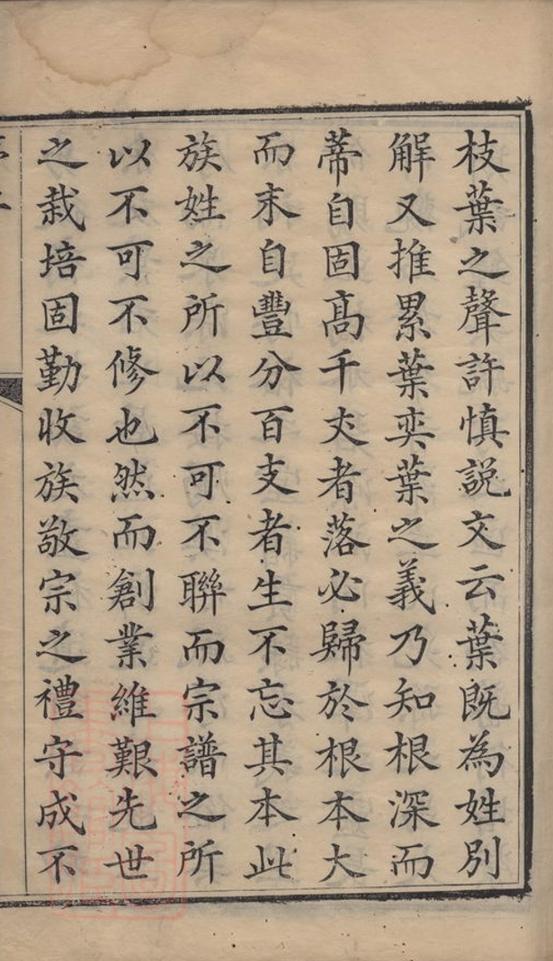 枝葉之聲許慎説文云葉既為姓别
解又推累葉奕葉之義乃知根深而
蒂自固髙千丈者落必歸於根本大
而末自豐分百支者生不忘其本此
族姓之所以不可不聯而宗譜之所
以不可不修也然而創業維艱先世
之栽培固勤收族敬宗之禮守成不